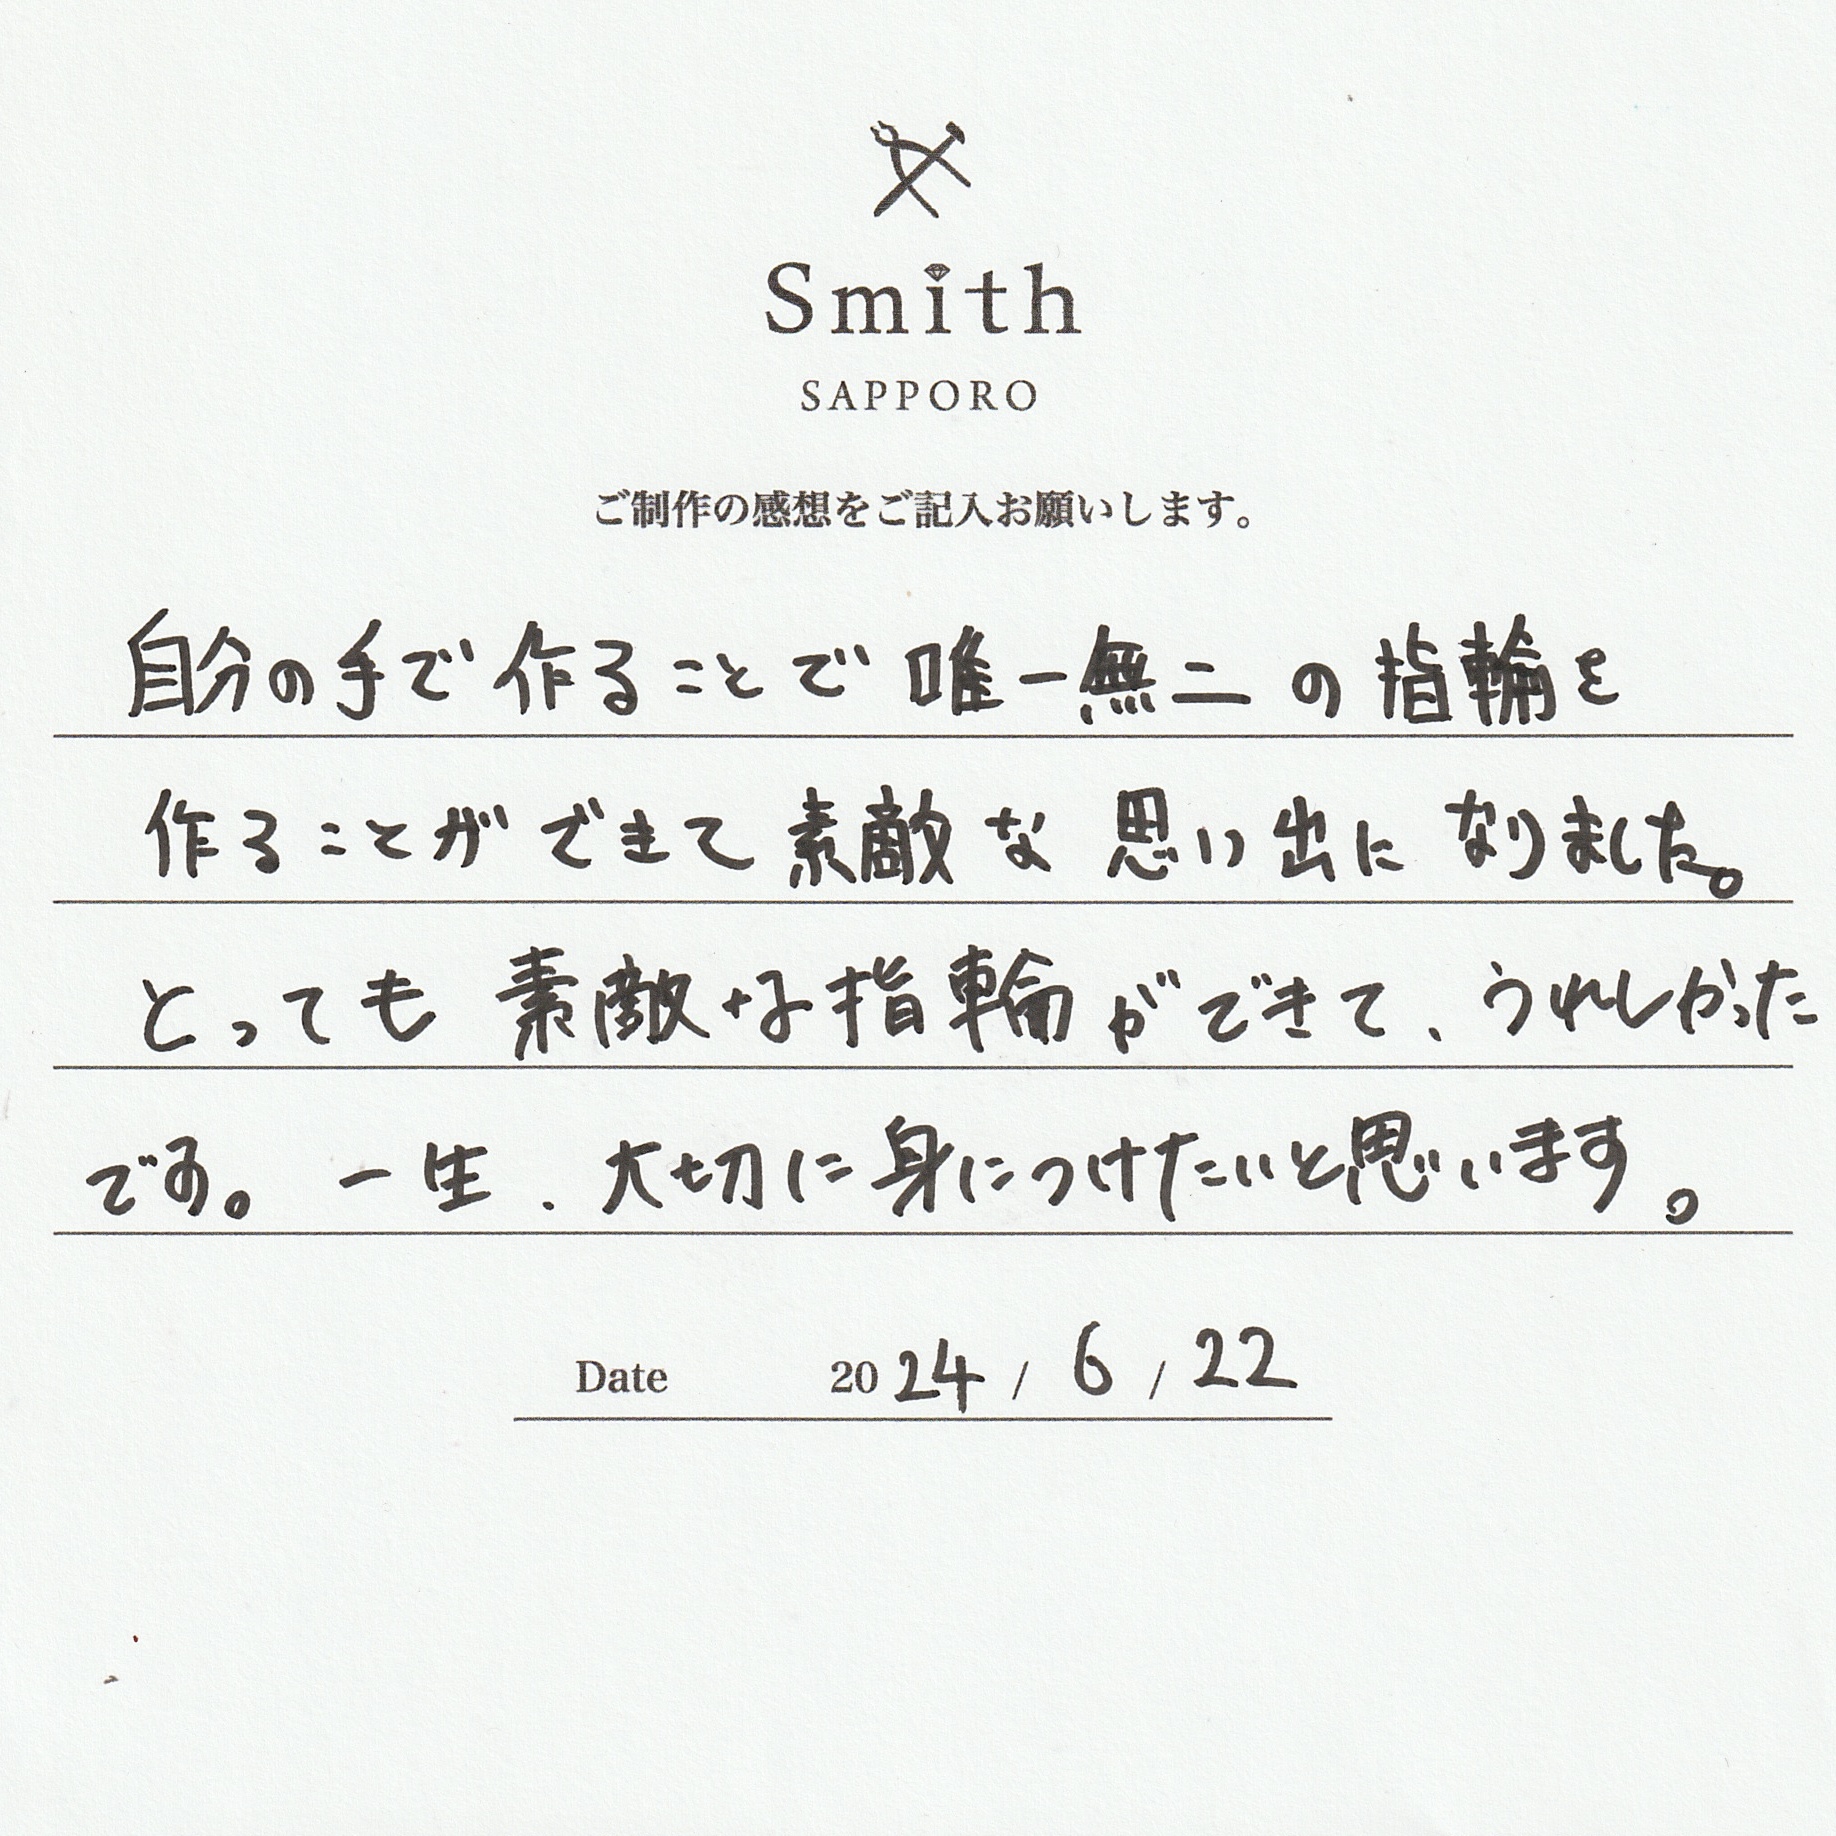 Smith
SAPPORO
ご制作の感想をご記入お願いします。
自分の手で作ることで唯一無二の指輪を
作ることができて素敵な思い出になりました。
とっても素敵な指輪ができて、うれしかった
です。一生、大切に身につけたいと思います。
Date 2024 / 6 / 22